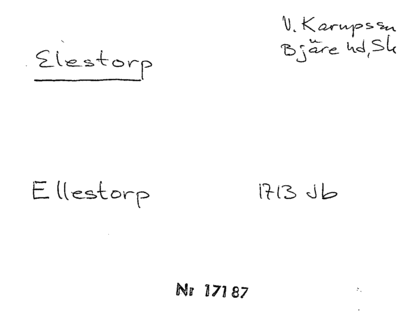 Elestorp
V. Karupssn
Bjäre hd, Sk
Ellestorp 1713 Jb
Nr 17187